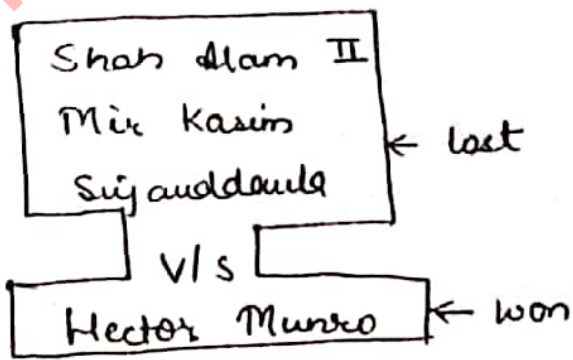 Shah Alam II
Mir Kasim
Sujauddaula
← lost
V/s
Hector Munro ← won